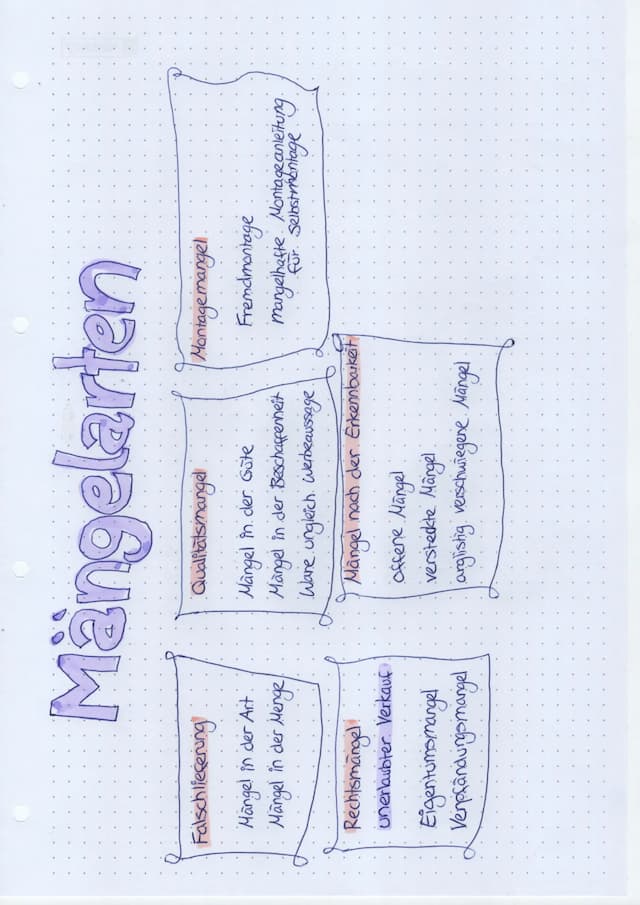 Mängelarten
Falschlieferung
Mängel in der Art
Mängel in der Menge
Qualitätsmangel
Mängel in der Güte
Mängel in der Beschaffenheit
Ware ungleich Werbeaussage
Montagemangel
Fremdmontage
mangelhafte Montageanleitung
für Selbstmontage
Rechtsmängel
unerlaubter Verkauf
Eigentumsmangel
Verpfändungsmangel
Mängel nach der Erkennbarkeit
offene Mängel
versteckte Mängel
arglistig verschwiegene Mängel